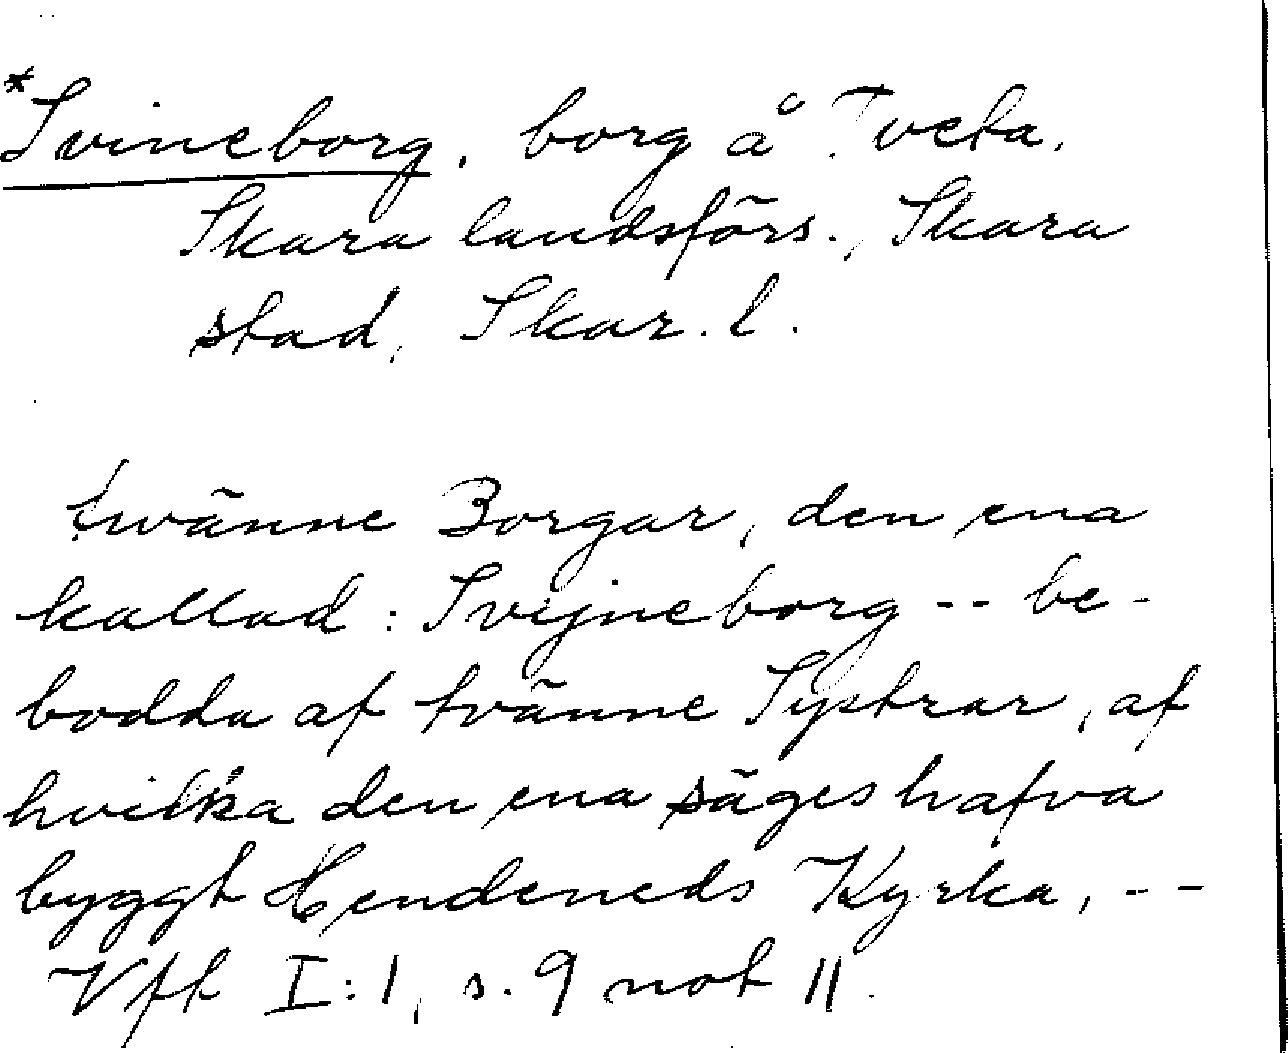 *Svineborg. borg å Tveta,
Skara landsförs., Skara
stad, Skar. l.
tvänne Borgar, den ena
kallad: Svijneborg -- be-
bodda af tvänne Systrar, af
hvilka den ena säges hafva
byggt Hendeneds Kyrka, --
Vft I:1, s. 9 not 11.